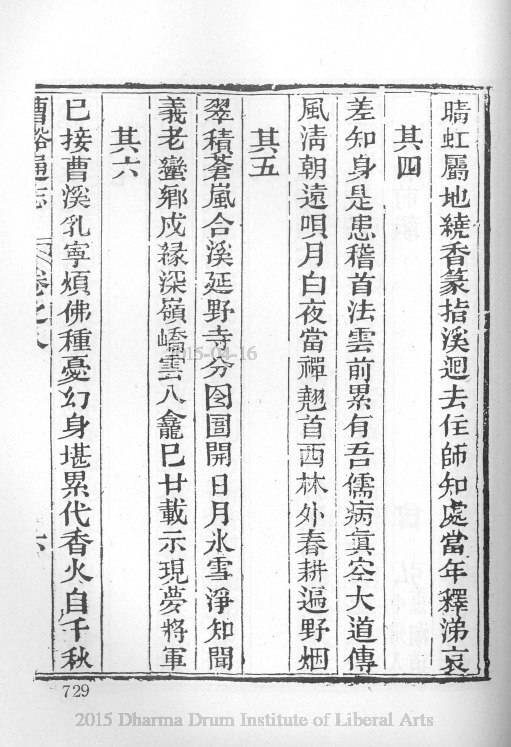 晴虹屬地繞香篆指溪迴去住師知處當年釋涕哀
其四
差知身是患稽首法雲前累有吾儒病眞空大道傳
風清朝遠唄月白夜當禪翹首西林外春耕遍野烟
其五
翠積蒼嵐合溪延野寺分囹圄開日月氷雪淨知聞
義老蠻鄉戍緣深嶺嶠雲八龕巳廿載示現夢將軍
其六
巳接曹溪乳寧煩佛種憂幻身堪累代香火自千秋
曹谿通志 卷之八 六
729
2015-04-16
2015 Dharma Drum Institute of Liberal Arts